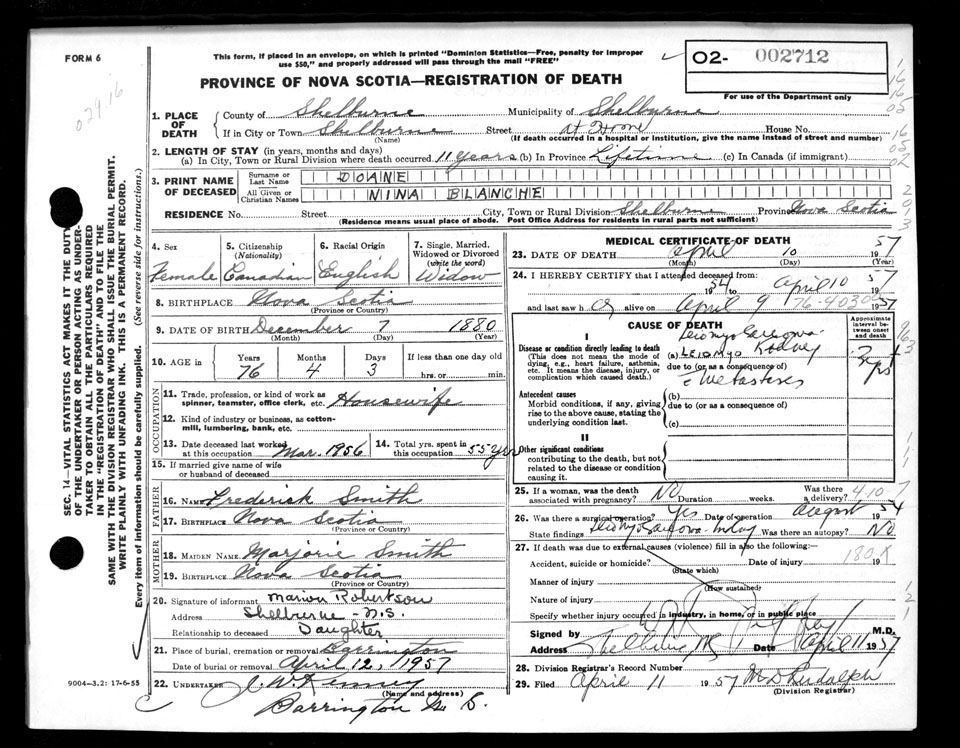 FORM 6
This form, if placed in an envelope, on which is printed "Dominion Statistics—Free, penalty for improper
use $50," and properly addressed will pass through the mail "FREE"
PROVINCE OF NOVA SCOTIA—REGISTRATION OF DEATH
02- 002712
For use of the Department only
029.16
1. PLACE OF DEATH
County of Shelburne Municipality of Shelburne
If in City or Town Shelburne Street at Home House No.
(Name) (If death occurred in a hospital or institution, give the name instead of street and number)
2. LENGTH OF STAY (in years, months and days)
(a) In City, Town or Rural Division where death occurred 11 years (b) In Province Lifetime (c) In Canada (if immigrant)
3. PRINT NAME OF DECEASED
Surname or Last Name DOANE
All Given or Christian Names NINA BLANCHE
RESIDENCE No. Street City, Town or Rural Division Shelburne Province Nova Scotia
(Residence means usual place of abode. Post Office Address for residents in rural parts not sufficient)
4. Sex Female
5. Citizenship (Nationality) Canadian
6. Racial Origin English
7. Single, Married, Widowed or Divorced (write the word) Widow
8. BIRTHPLACE Nova Scotia
(Province or Country)
9. DATE OF BIRTH December 7 1880
(Month) (Day) (Year)
10. AGE in Years Months Days If less than one day old
76 4 3 hrs. or min.
OCCUPATION
11. Trade, profession, or kind of work as spinner, teamster, office clerk, etc. Housewife
12. Kind of industry or business, as cotton-mill, lumbering, bank, etc.
13. Date deceased last worked at this occupation Mar. 1956
14. Total yrs. spent in this occupation 55 yrs
15. If married give name of wife or husband of deceased
FATHER
16. NAME Frederick Smith
17. BIRTHPLACE Nova Scotia
(Province or Country)
MOTHER
18. MAIDEN NAME Marjorie Smith
19. BIRTHPLACE Nova Scotia
(Province or Country)
20. Signature of informant Marion Robertson
Address Shelburne - N.S.
Relationship to deceased Daughter
21. Place of burial, cremation or removal Barrington
Date of burial or removal April 12, 1957
22. UNDERTAKER J. W. Kenney
(Name and address)
Barrington
9004—3.2: 17-6-55
SEC. 14—VITAL STATISTICS ACT MAKES IT THE DUTY
OF THE UNDERTAKER OR PERSON ACTING AS UNDER-
TAKER TO OBTAIN ALL THE PARTICULARS REQUIRED
IN THE "REGISTRATION OF DEATH" AND TO FILE THE
SAME WITH THE DIVISION REGISTRAR WHO SHALL ISSUE THE BURIAL PERMIT.
WRITE PLAINLY WITH UNFADING INK. THIS IS A PERMANENT RECORD.
Every item of information should be carefully supplied. (See reverse side for instructions.)
MEDICAL CERTIFICATE OF DEATH
23. DATE OF DEATH April 10 1957
(Month) (Day) (Year)
24. I HEREBY CERTIFY that I attended deceased from
1954 to April 10 1957
and last saw her alive on April 9 1957
CAUSE OF DEATH
Approximate interval between onset and death
I
Disease or condition directly leading to death
(This does not mean the mode of dying, e.g., heart failure, asthenia, etc. It means the disease, injury, or complication which caused death.)
(a) LEIOMYO
Kidney
due to (or as a consequence of)
Metastases
Antecedent causes
Morbid conditions, if any, giving rise to the above cause, stating the underlying condition last.
(b)
due to (or as a consequence of)
(c)
II
Other significant conditions
contributing to the death, but not related to the disease or condition causing it.
25. If a woman, was the death associated with pregnancy? NO Duration weeks. Was there a delivery?
26. Was there a surgical operation? Yes Date of operation August 1954
State findings Was there an autopsy? No
27. If death was due to external causes (violence) fill in also the following:—
Accident, suicide or homicide? Date of injury 19
(State which)
180X
Manner of injury
(How sustained)
Nature of injury
Specify whether injury occurred in industry, in home, or in public place
Signed by M.D.
Address Date April 11 1957
28. Division Registrar's Record Number
29. Filed April 11 1957
(Division Registrar)